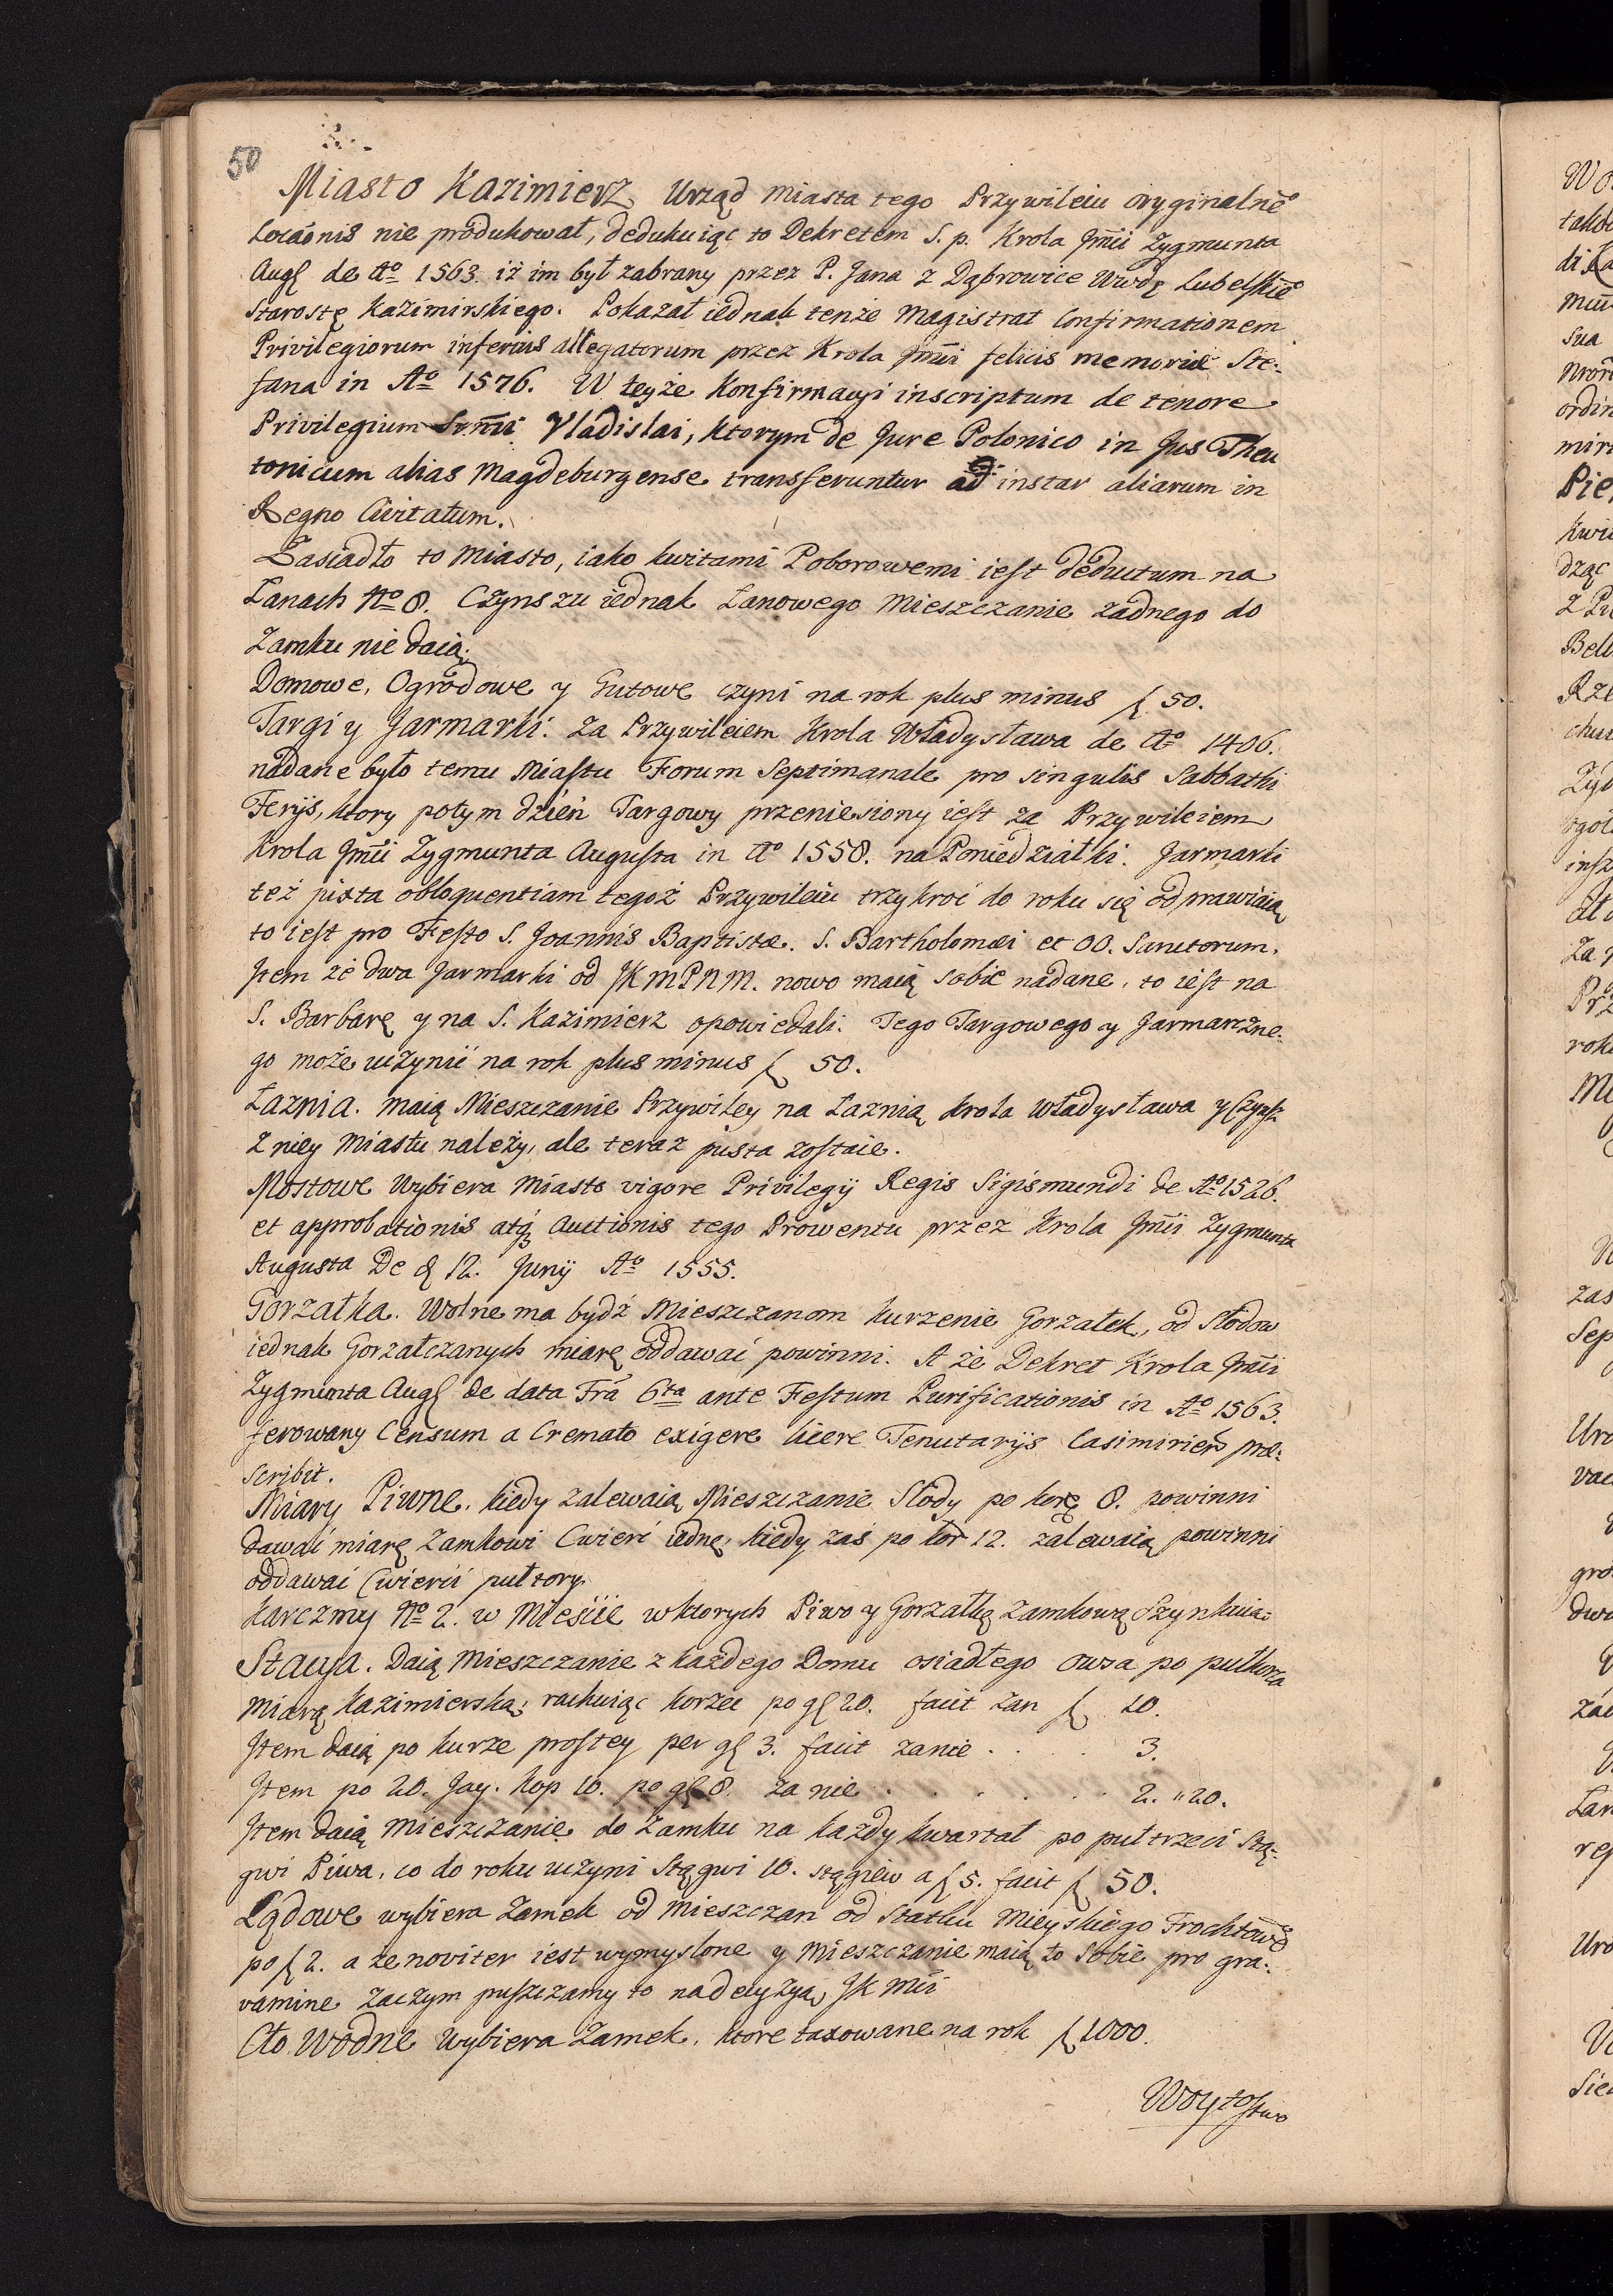 50
Miasto Kazimierz, Urząd Miasta tego Przywileiu oryginalne͞o
Loca͠onis nie produkował, dedukuiąc to Dekretem S. p. Krola Jm͠ci Zygmunta
Aug. de A͟o 1563. iż im był zabrany przez P. Jana z Dąbrowice Wwodę Lubelskie͞o
Starostę Kazimirskiego. Pokazał iednak tenże Magistrat Confirmationem
Privilegiorum inferius allegatorum przez Krola Jm͠ci felicis memoriæ Ste:
fana in A͟o 1576. W teyże Konfirmacyi inscriptum de tenore
Privilegium Ser͠mi Vladislai, ktorym de Jure Polonico in Jus Theu
tonicum alias Magdeburgense transferuntur ad instar aliarum in
Regno Civitatum.
Zasiadło to Miasto, iako kwitami Poborowemi iest deductum na
Łanach N͟o 8. Czynszu iednak Łanowego Mieszczanie żadnego do
Zamku nie daią.
Domowe, Ogrodowe y Hutowe czyni na rok plus minus f 50.
Targi y Jarmarki. Za Przywileiem Krola Władysława de A͟o 1406.
nadane było temu Miastu Forum Septimanale pro singulis Sabbathi
Ferijs, ktory potym dzień Targowy przeniesiony iest za Przywileiem
Krola Jm͠ci Zygmunta Augusta in A͟o 1558. na Poniedziałki. Jarmarki
też juxta obloquentiam tegoż Przywileiu trzykroć do roku się odprawiaią
to iest pro Festo S. Joannis Baptistæ. S. Bartholomæi et OO. Sanctorum.
Item że dwa Jarmarki od JKMPNM. nowo maią sobie nadane, to iest na
S. Barbarę y na S. Kazimierz opowiedali. Tego Targowego y Jarmarczne:
go może uczynić na rok plus minus f 50.
Łaznia. Maią Mieszczanie Przywiley na Łaznią Krola Władysława y Czynsz
z niey Miastu należy, ale teraz pusta zostaie.
Mostowe Wybiera Miasto vigore Privilegij Regis Sigismundi de A͟o 1526.
et approbationis atq̃ Auctionis tego Prowentu przez Krola Jm͠ci Zygmunta
Augusta De d 12. Junij A͟o 1555.
Gorzałka. Wolne ma bydź Mieszczanom kurzenie Gorzałek, od Słodow
iednak Gorzałczanych miarę oddawać powinni. A że Dekret Krola Jm͠ci
Zygmunta Aug. de data Fr͠a 6ta ante Festum Purificationis in A͟o 1563.
ferowany Censum a Cremato exigere licere Tenutarijs Casimirien præ:
scribit.
Miary Piwne. kiedy zalewaią Mieszczanie Słody po korę 8. powinni
dawać miarę Zamkowi Cwierć iednę, kiedy zaś po kor 12. zalewaią powinni
oddawać Cwierci pułtory.
Karczmy N͟o 2. w Mieście w ktorych Piwo y Gorzałkę Zamkową Szynkuią:
Stacya. Daią Mieszczanie z każdego Domu osiadłego owsa po pułkorca
Miarą Kazimierską, rachuiąc korzec po gl 20. facit zan f 20.
Item daią po kurze prostey per gl 3. facit zanie . . . . 3.
Item po 20. Jay. kop 10. po gl 8. za nie . . . . . . . 2. " 20.
Item daią Mieszczanie do Zamku na każdy kwartał po puł trzeci Stą:
gwi Piwa, co do roku uczyni Stągwi 10. stągiew a f 5. facit f 50.
Lądowe wybiera Zamek od Mieszczan od Statku Mieyskiego Frochtowe͞o
po f 2. a że noviter iest wymyslone y Mieszczanie maią to Sobie pro gra:
vamine zaczym puszczamy to na decyzyą JK Mci
Cło Wodne Wybiera Zamek, ktore taxowane na rok f 1000.
Woytostwo